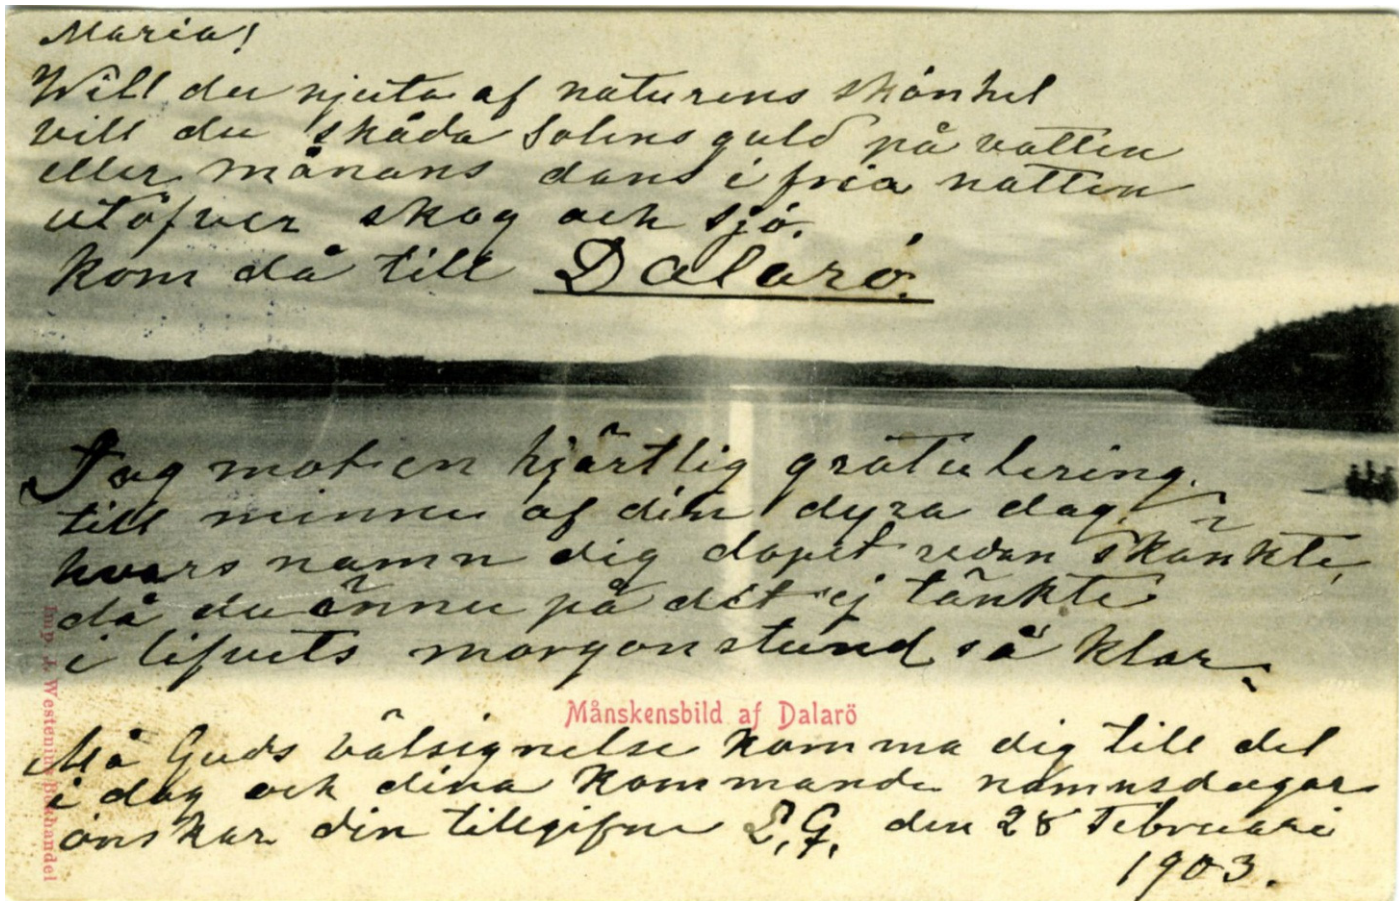 Maria!
Will du njuta af naturens skönhet
vill du skåda solens guld på vatten
eller månans dans i fria natten
utöfver skog och sjö.
kom då till Dalarö.
Tag mot en hjärtlig gratulering.
till minne af din dyra dag,
hvars namn dig dopet redan skänkte,
då du ännu på det ej tänkte
i lifvets morgonstund så klar.
Månskensbild af Dalarö
Må Guds välsignelse komma dig till del
i dag och dina kommande namnsdagar
önskar din tillgifne E.G. den 28 Februari
1903.
Imp. J. Westenius Bokhandel